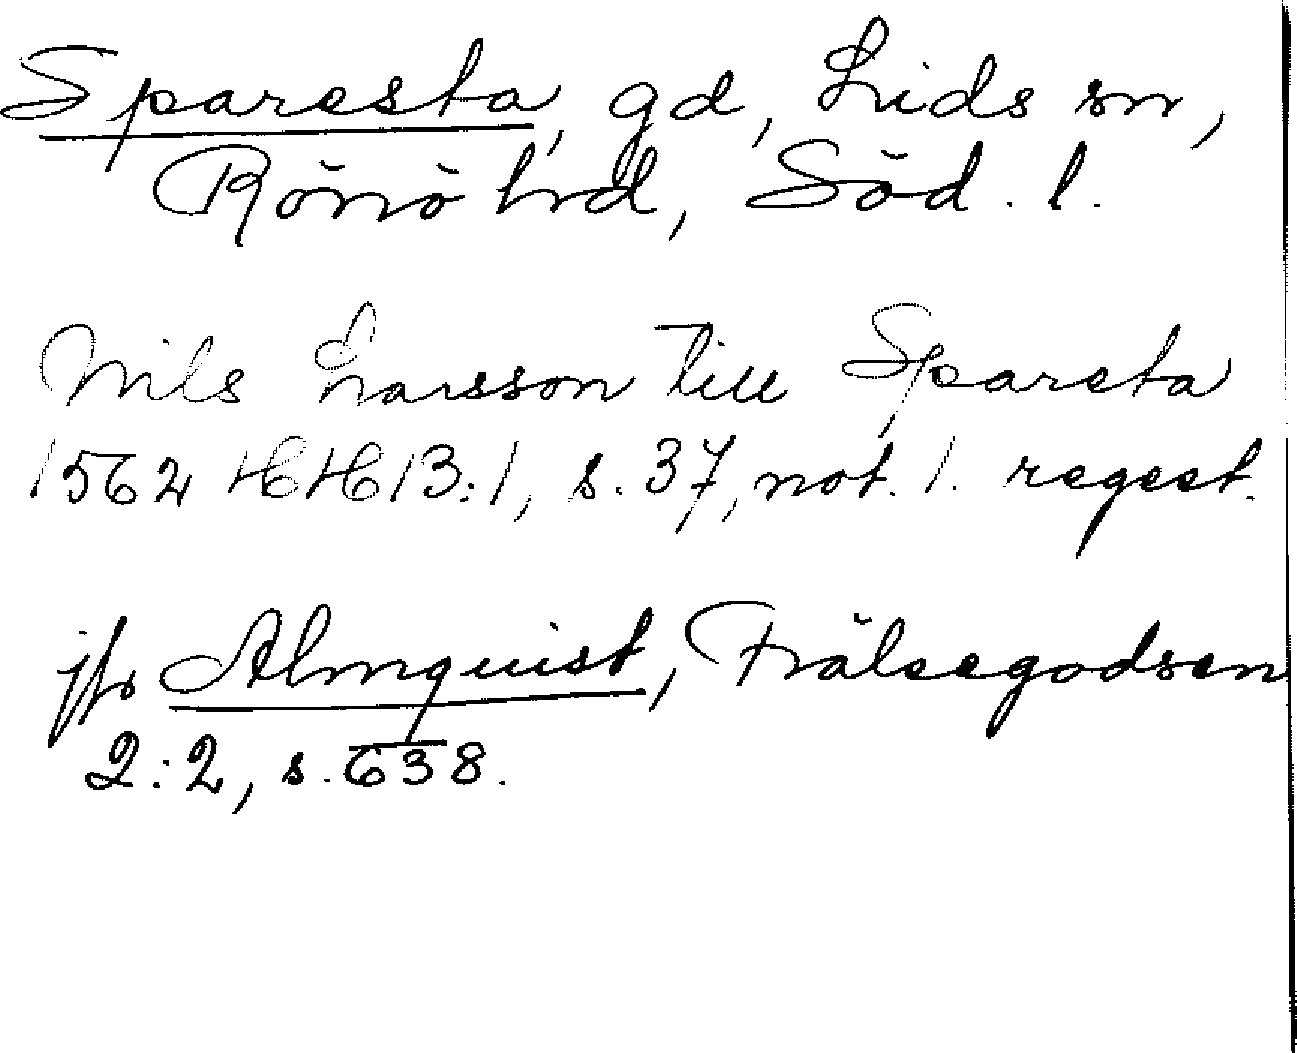 Sparesta, gd, Lids sn,
Rönö hrd, Söd. l.
Nils Larsson till Sparsta
1562 HH 13:1, s. 37, not. 1. regest.
jfr Almquist, Frälsegodsen
2:2, s. 638.